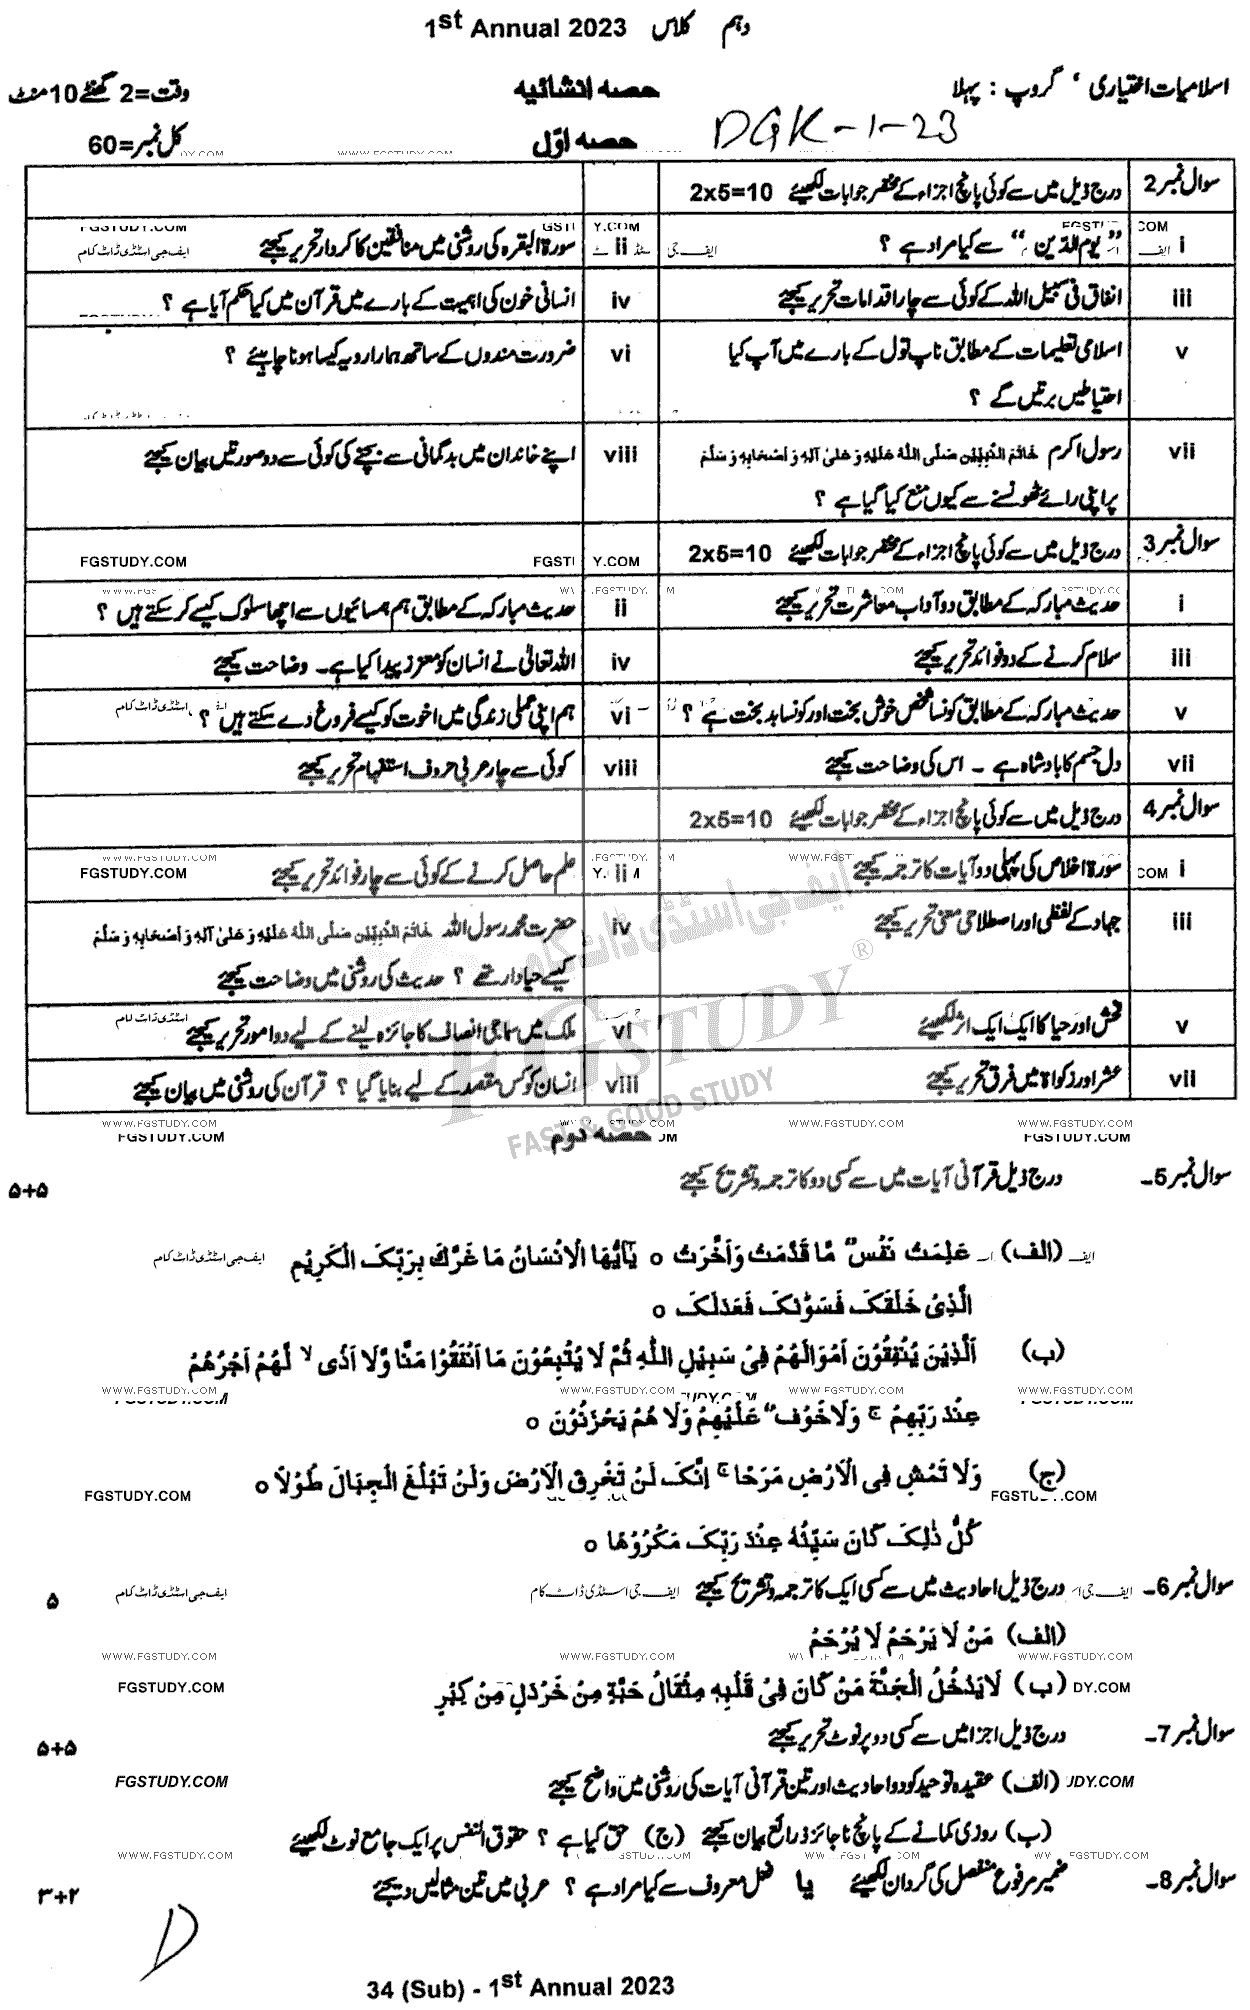 1st Annual 2023 کلاس دہم
اسلامیات اختیاری ، گروپ : پہلا حصہ انشائیہ وقت=2 گھنٹے 10 منٹ
DGK-1-23 حصہ اوّل کل نمبر=60
سوال نمبر 2 درج ذیل میں سے کوئی پانچ اجزاء کے مختصر جوابات لکھیئے 2x5=10
i ”یوم الدّین“ سے کیا مراد ہے ؟ ii سورۃ البقرہ کی روشنی میں منافقین کا کردار تحریر کیجئے
iii انفاق فی سبیل اللہ کے کوئی سے چار اقدامات تحریر کیجئے iv انسانی خون کی اہمیت کے بارے میں قرآن میں کیا حکم آیا ہے ؟
v اسلامی تعلیمات کے مطابق ناپ تول کے بارے میں آپ کیا vi ضرورت مندوں کے ساتھ ہمارا رویہ کیسا ہونا چاہیئے ؟
احتیاطیں برتیں گے ؟
vii رسول اکرم خَاتَمُ النَّبِیّٖن صَلَّی اللہُ عَلَیْہِ وَ عَلٰی آلِہٖ وَ اَصْحَابِہٖ وَ سَلَّمَ viii اپنے خاندان میں بدگمانی سے بچنے کی کوئی سے دو صورتیں بیان کیجئے
پر اپنی رائے ٹھونسنے سے کیوں منع کیا گیا ہے ؟
سوال نمبر 3 درج ذیل میں سے کوئی پانچ اجزاء کے مختصر جوابات لکھیئے 2x5=10
i حدیث مبارکہ کے مطابق دو آداب معاشرت تحریر کیجئے ii حدیث مبارکہ کے مطابق ہم ہمسائیوں سے اچھا سلوک کیسے کر سکتے ہیں ؟
iii سلام کرنے کے دو فوائد تحریر کیجئے iv اللہ تعالیٰ نے انسان کو معزز پیدا کیا ہے۔ وضاحت کیجئے
v حدیث مبارکہ کے مطابق کونسا شخص خوش بخت اور کونسا بد بخت ہے ؟ vi ہم اپنی عملی زندگی میں اخوت کو کیسے فروغ دے سکتے ہیں ؟
vii دل جسم کا بادشاہ ہے ۔ اس کی وضاحت کیجئے viii کوئی سے چار عربی حروف استفہام تحریر کیجئے
سوال نمبر 4 درج ذیل میں سے کوئی پانچ اجزاء کے مختصر جوابات لکھیئے 2x5=10
i سورۃ اخلاص کی پہلی دو آیات کا ترجمہ کیجئے ii علم حاصل کرنے کے کوئی سے چار فوائد تحریر کیجئے
iii جہاد کے لفظی اور اصطلاحی معنی تحریر کیجئے iv حضرت محمد رسول اللہ خَاتَمُ النَّبِیّٖن صَلَّی اللہُ عَلَیْہِ وَ عَلٰی آلِہٖ وَ اَصْحَابِہٖ وَ سَلَّمَ
کیسے حیادار تھے ؟ حدیث کی روشنی میں وضاحت کیجئے
v فحش اور حیا کا ایک ایک اثر لکھیئے vi ملک میں سماجی انصاف کا جائزہ لینے کے لیے دو امور تحریر کیجئے
vii عشر اور زکوٰۃ میں فرق تحریر کیجئے viii انسان کو کس مقصد کے لیے بنایا گیا ؟ قرآن کی روشنی میں بیان کیجئے
ایف جی اسٹڈی ڈاٹ کام
FGSTUDY®
FAST & GOOD STUDY
WWW.FGSTUDY.COM
FGSTUDY.COM
حصہ دوم
سوال نمبر 5۔ درج ذیل قرآنی آیات میں سے کسی دو کا ترجمہ و تشریح کیجئے ۵+۵
(الف) عَلِمَتْ نَفْسٌ مَّا قَدَّمَتْ وَاَخَّرَتْ ہ یٰاَیُّھَا الْاِنْسَانُ مَا غَرَّکَ بِرَبِّکَ الْکَرِیْمِ
الَّذِیْ خَلَقَکَ فَسَوّٰىکَ فَعَدَلَکَ ہ
(ب) اَلَّذِیْنَ یُنْفِقُوْنَ اَمْوَالَھُمْ فِیْ سَبِیْلِ اللّٰہِ ثُمَّ لَا یُتْبِعُوْنَ مَا اَنْفَقُوْا مَنًّا وَّلَا اَذًی لا لَّھُمْ اَجْرُھُمْ
عِنْدَ رَبِّھِمْ ج وَلَا خَوْفٌ عَلَیْھِمْ وَلَا ھُمْ یَحْزَنُوْنَ ہ
(ج) وَلَا تَمْشِ فِی الْاَرْضِ مَرَحًا ج اِنَّکَ لَنْ تَخْرِقَ الْاَرْضَ وَلَنْ تَبْلُغَ الْجِبَالَ طُوْلًا ہ
کُلُّ ذٰلِکَ کَانَ سَیِّئُہٗ عِنْدَ رَبِّکَ مَکْرُوْھًا ہ
سوال نمبر 6۔ درج ذیل احادیث میں سے کسی ایک کا ترجمہ و تشریح کیجئے ۵
(الف) مَنْ لَا یَرْحَمْ لَا یُرْحَمْ
(ب) لَا یَدْخُلُ الْجَنَّۃَ مَنْ کَانَ فِیْ قَلْبِہٖ مِثْقَالُ حَبَّۃٍ مِنْ خَرْدَلٍ مِنْ کِبْرٍ
سوال نمبر 7۔ درج ذیل اجزا میں سے کسی دو پر نوٹ تحریر کیجئے ۵+۵
(الف) عقیدہ توحید کو دو احادیث اور تین قرآنی آیات کی روشنی میں واضح کیجئے
(ب) روزی کمانے کے پانچ ناجائز ذرائع بیان کیجئے (ج) حق کیا ہے ؟ حقوق النفس پر ایک جامع نوٹ لکھیئے
سوال نمبر 8۔ ضمیر مرفوع منفصل کی گردان لکھیئے یا فعل معروف سے کیا مراد ہے ؟ عربی میں تین مثالیں دیجئے ۳+۲
D
34 (Sub) - 1st Annual 2023